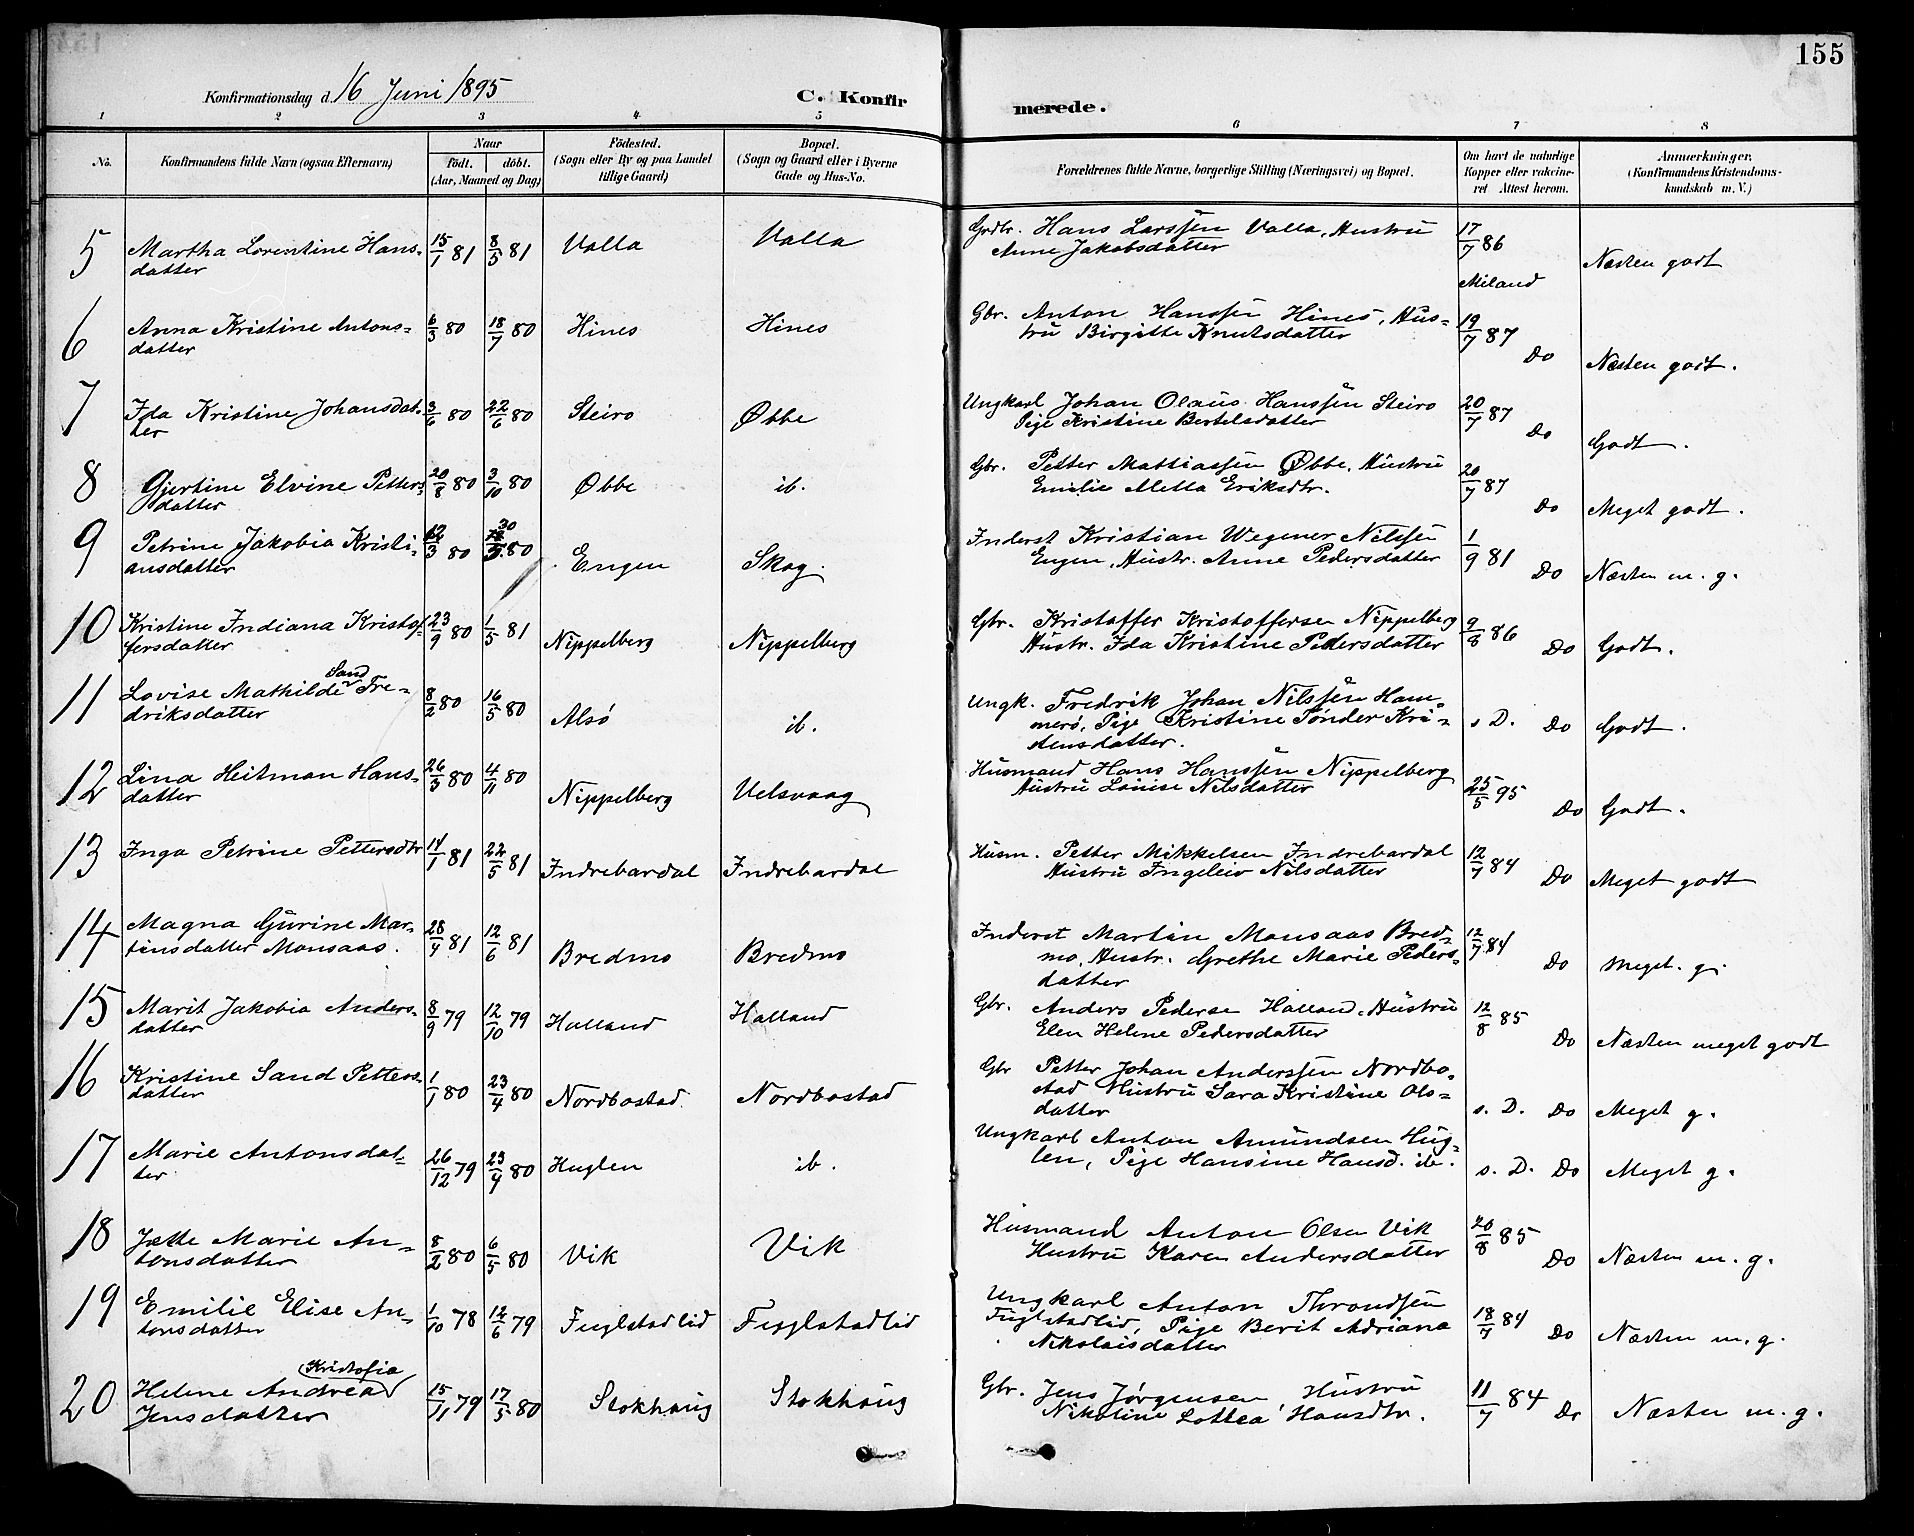 155
Konfirmationsdag d. 16 Juni 1895
C. Konfirmerede.
1 2 3 4 5 6 7 8
No.
Konfirmandens fulde Navn (ogsaa Efternavn)
Naar
født. døbt.
(Aar, Maaned og Dag)
Fødested.
(Sogn eller By og paa Landet
tillige Gaard)
Bopæl.
(Sogn og Gaard eller i Byerne
Gade og Hus-No.
Forældrenes fulde Navne, borgerlige Stilling (Næringsvei) og Bopæl.
Om havt de naturlige
Kopper eller vakcine-
ret Attest herom.
Anmærkninger.
(Konfirmandens Kristendoms-
kundskab m. V.)
5 Martha Lorentine Hans- 15/1 81 8/5 81 Valla Valla Grdbr. Hans Larssen Valla, Hustru 17/7 86
datter Anne Jakobsdatter Miland Næsten godt
6 Anna Kristine Antons- 6/3 80 18/7 80 Hines Hines Gbr. Anton Hanssen Hines, Hus- 19/7 87
datter tru Birgitte Knutsdatter Do Næsten godt.
7 Ida Kristine Johansdat- 3/6 80 22/6 80 Steiro Øbbe Ungkarl Johan Olaus Hanssen Steiro 20/7 87
ter Pige Kristine Bertelsdatter Do Godt.
8 Gjertine Elvine Petters- 20/8 80 3/10 80 Øbbe ib. Gbr. Petter Mattiassen Øbbe, Hustru 20/7 87
datter Emilie Metta Eriksdtr. Do Meget godt.
9 Petrine Jakobia Kristi- 12/3 80 30/5 80 Engen Skog. Inderst Kristian Wegener Nilssen 1/9 81
ansdatter Engen, Hustr. Anne Pedersdatter Do Næsten m. g.
10 Kristine Indiana Kristof- 23/9 80 1/5 81 Nippelberg Nippelberg Gbr. Kristoffer Kristoffersen Nippelberg 9/8 86
fersdatter Hustr. Ida Kristine Pedersdatter Do Godt.
11 Lovise Mathilde Sand Fre- 8/2 80 16/5 80 Alsø ib. Ungk. Fredrik Johan Nilssen Ham-
driksdatter merø, Pige Kristine Tønder Kri- s. D. Do Godt.
stensdatter.
12 Lina Heitman Hans- 26/3 80 4/11 80 Nippelberg Uelsvaag Husmand Hans Hanssen Nippelberg 25/5 95
datter Hustru Louise Nilsdatter Do Godt.
13 Inga Petrine Pettersdtr 14/1 81 22/5 81 Indrebardal Indrebardal Husm. Petter Mikkelsen Indrebardal 12/7 84
Hustru Ingeleiv Nilsdatter Do Meget godt
14 Magna Gurine Mar- 28/4 81 12/6 81 Bredmo Bredmo Inderst Martin Monsaas Bred- 12/7 84
tinsdatter Monsaas. mo, Hustr. Grethe Marie Peders- Do Meget. g.
datter
15 Marit Jakobia Anders- 8/9 79 12/10 79 Halland Halland Gbr. Anders Pederse Halland, Hustru 12/8 85
datter Elen Helene Pedersdatter Do Næsten meget godt
16 Kristine Sand Petters- 1/1 80 23/4 80 Nordbostad. Nordbostad Gbr Petter Johan Anderssen Nordbo-
datter stad Hustru Sara Kristine Ols-
datter s. D. Do Meget g.
17 Marie Antonsdat- 26/12 79 23/4 80 Huglen ib. Ungkarl Anton Amundsen Hug-
ter len, Pige Hansine Hansd. ib. s. D. Do Meget g.
18 Jette Marie An- 8/2 80 6/5 80 Vik Vik Husmand Anton Olsen Vik 20/8 85
tonsdatter Hustru Karen Andersdatter Do Næsten m. g.
19 Emilie Elise An- 1/10 78 12/6 79 Fuglstadlid Fuglstadlid Ungkarl Anton Throndsen 18/7 84
tonsdatter Fuglstadlid, Pige Berit Adriana Do Næsten m. g.
Nikolaisdatter
20 Helene Andrea Kristofia 15/11 79 17/5 80 Stokhaug Stokhaug Gbr. Jens Jørgensen Hustru 11/7 84
Jensdatter Nikoline Lottea Hansdtr. Do Næsten m. g.